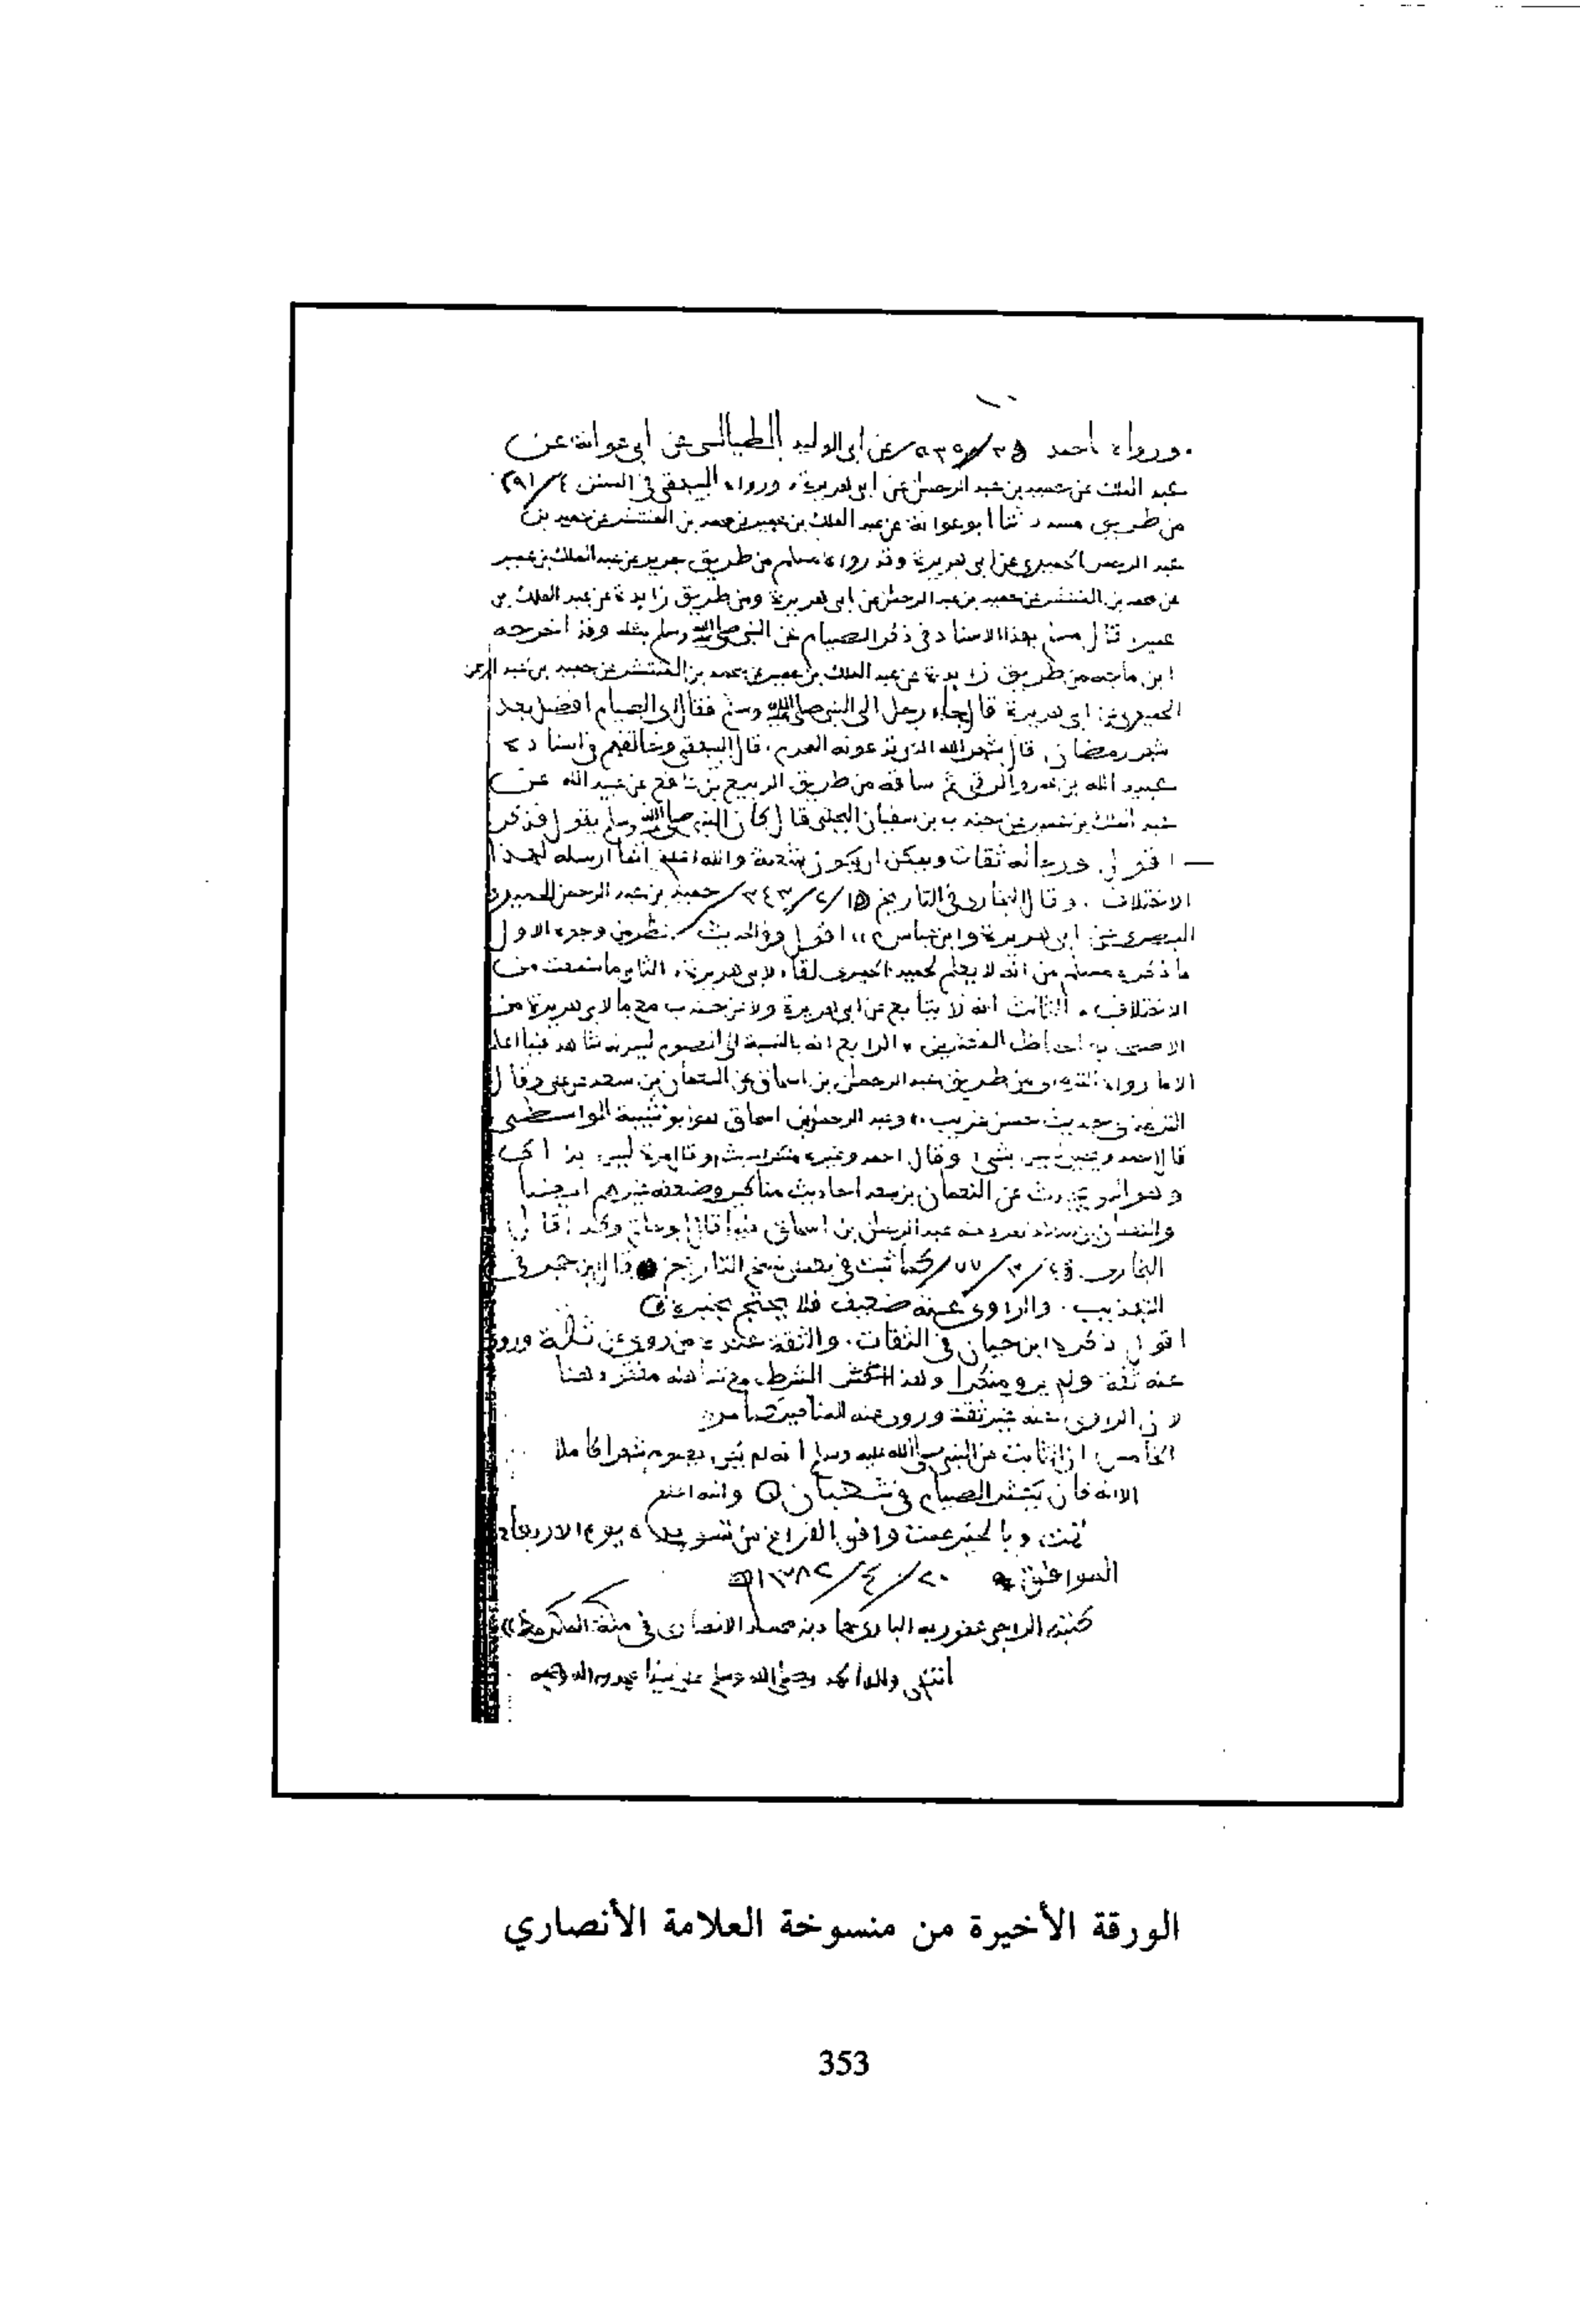 ورواه احمد عن ابى الوليد الطيالسى عن ابى عوانة عن
عبد الملك عن حميد بن عبد الرحمن عن ابى هريرة، ورواه البيهقى فى السنن ٤/٢٩١
من طريق مسدد ثنا ابو عوانة عن عبد الملك بن عمير عن محمد بن المنتشر عن حميد بن
عبد الرحمن الحميرى عن ابى هريرة وقد رواه مسلم من طريق جرير عن عبد الملك بن عمير
عن محمد بن المنتشر عن حميد بن عبد الرحمن عن ابى هريرة ومن طريق زايدة عن عبد الملك بن
عمير قال مسلم بهذا الاسناد فى ذكر الصيام عن النبى صلى الله وسلم بمثله وقد اخرجه
ابن ماجه من طريق زايدة عن عبد الملك بن عمير عن محمد بن المنتشر عن حميد بن عبد الرحمن
الحميرى عن ابى هريرة قال جاء رجل الى النبى صلى الله وسلم فقال اى الصيام افضل بعد
شهر رمضان، قال شهر الله الذى تدعونه المحرم. قال البيهقى وخالفهم فى اسناده
عبيد الله بن عمرو الرقى ثم ساقه من طريق الربيع بن نافع عن عبيد الله عن
عبد الملك بن عمير عن جندب بن سفيان البجلى قال كان النبى صلى الله وسلم يقول فذكره
اقول ورجاله ثقات ويمكن ان يكون شعبة والله اعلم انما ارسله لهذا
الاختلاف. وقال البخارى فى التاريخ حميد بن عبد الرحمن الحميرى
البصرى عن ابى هريرة وابن عباس، اقول وفى الحديث نظر من وجوه الاول
ما ذكره مسلم من انه لا يعلم لحميد الحميرى لقاء لابى هريرة، الثانى ما سمعت من
الاختلاف. الثالث انه لا يتابع عن ابى هريرة ولا عن جندب مع ما لابى هريرة من
الاصحاب الحفاظ المكثرين، الرابع انه بالنسبة الى الصوم ليس له شاهد فيما اعلم
الا ما رواه الترمذى من طريق عبد الرحمن بن اسحاق عن النعمان بن سعد عن على وقال
الترمذى حديث حسن غريب، وعبد الرحمن بن اسحاق هو ابو شيبة الواسطى
قال احمد وغيره ليس بشئ وقال احمد وغيره منكر الحديث وقال مرة ليس بذاك
وهو الذى يحدث عن النعمان بن سعد احاديث مناكير وضعفه غيرهم ايضا
والنعمان بن سعد تفرد عنه عبد الرحمن بن اسحاق فيما قال ابو حاتم وكذا قال
البخارى كما ثبت فى بعض نسخ التاريخ قال ابن حجر فى
التهذيب. والراوى عنه ضعيف فلا يحتج بخبره
اقول ذكره ابن حبان فى الثقات. والثقة عنده من روى عن ثقة وروى
عنه ثقة ولم يرو منكرا وهذا الشرط مع تساهله مفقود هنا
لان الراوى عنه غير ثقة وروى عنه المناكير كما مر
الخامس ان الثابت عن النبى صلى الله عليه وسلم انه لم يكن يصوم شهرا كاملا
الا انه كان يكثر الصيام فى شعبان والله اعلم
تمت وبالخير عمت وافق الفراغ من تسويده يوم الاربعاء
الموافق ٢٠/٤/١٣٨٢ه
كتبه الراجى عفو ربه البارى حماد بن محمد الانصارى فى مكة المكرمة»
انتهى ولله الحمد وصلى الله وسلم على نبينا محمد وآله وصحبه
الورقة الأخيرة من منسوخة العلامة الأنصاري
353